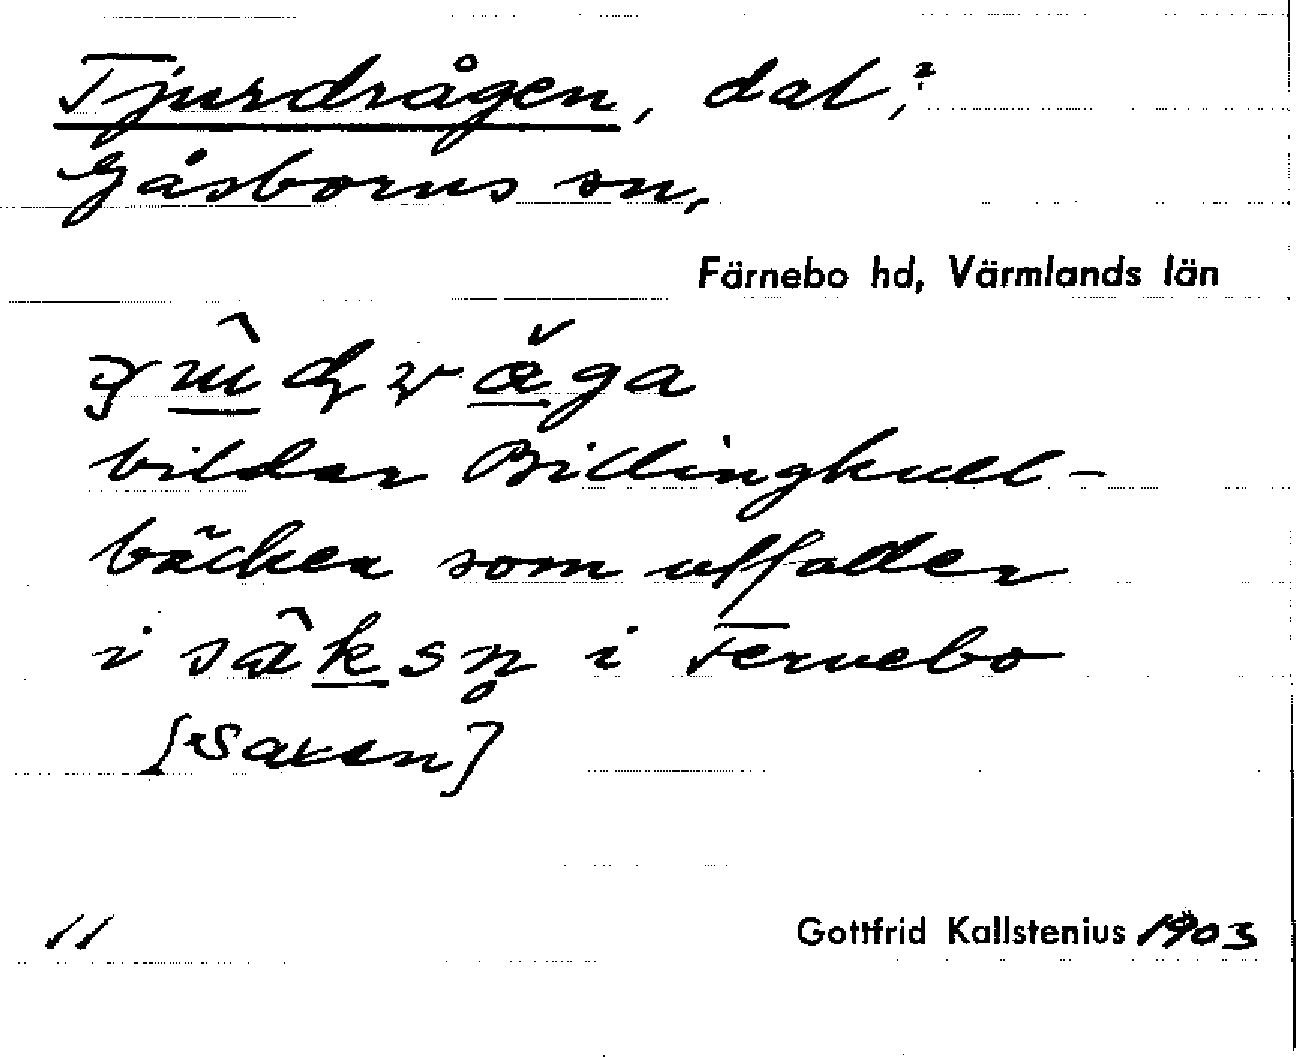 Tjurdrågen, dal;?
Gåsborns sn,
Färnebo hd, Värmlands län
bildar Billingkull-
bäcken som utfaller
i säksn̥ i Fernebo
[Saxen]
11
Gottfrid Kallstenius 1903